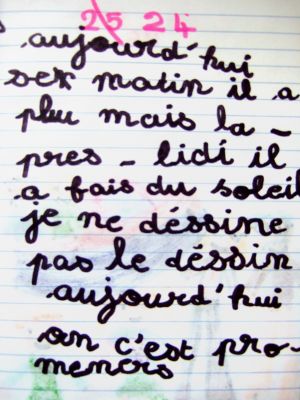 25 24
aujourd'hui
ser matin il a
plu mais la -
pres - lidi il
a fais du soleil
je ne déssine
pas le déssin
aujourd'hui
on c'est pro-
menors